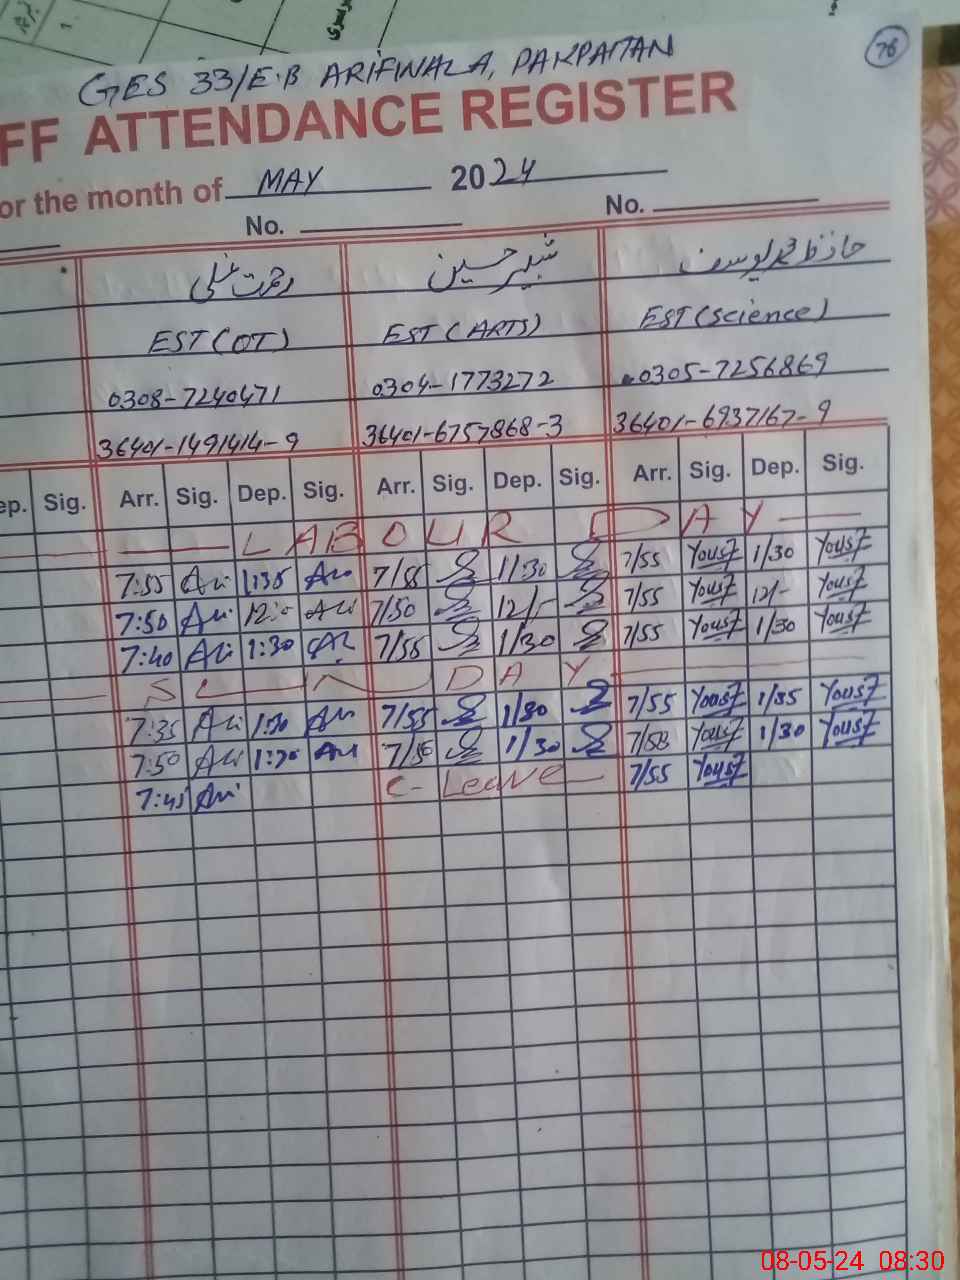 76
GES 33/E.B ARIFWALA, PAKPATTAN
FF ATTENDANCE REGISTER
or the month of MAY 2024
No. No.
رحمت علی شبیر حسین حافظ محمد یوسف
EST (OT) EST (ARTS) EST (Science)
0308-7240471 0304-1773272 0305-7256869
36401-1491414-9 36401-6757868-3 36401-6937167-9
ep. Sig. Arr. Sig. Dep. Sig. Arr. Sig. Dep. Sig. Arr. Sig. Dep. Sig.
LABOUR DAY
7:55 Ali 1:35 Ali 7/55 1/30 7/55 Yousf 1/30 Yousf
7:50 Ali 12:0 Ali 7/50 12/- 7/55 Yousf 12/- Yousf
7:40 Ali 1:30 Ali 7/55 1/30 7/55 Yousf 1/30 Yousf
SUNDAY
7:35 Ali 1:30 Ali 7/55 1/30 7/55 Yousf 1/35 Yousf
7:50 Ali 1:30 Ali 7/50 1/30 7/58 Yousf 1/30 Yousf
7:45 Ali C-Leave 7/55 Yousf
08-05-24 08:30